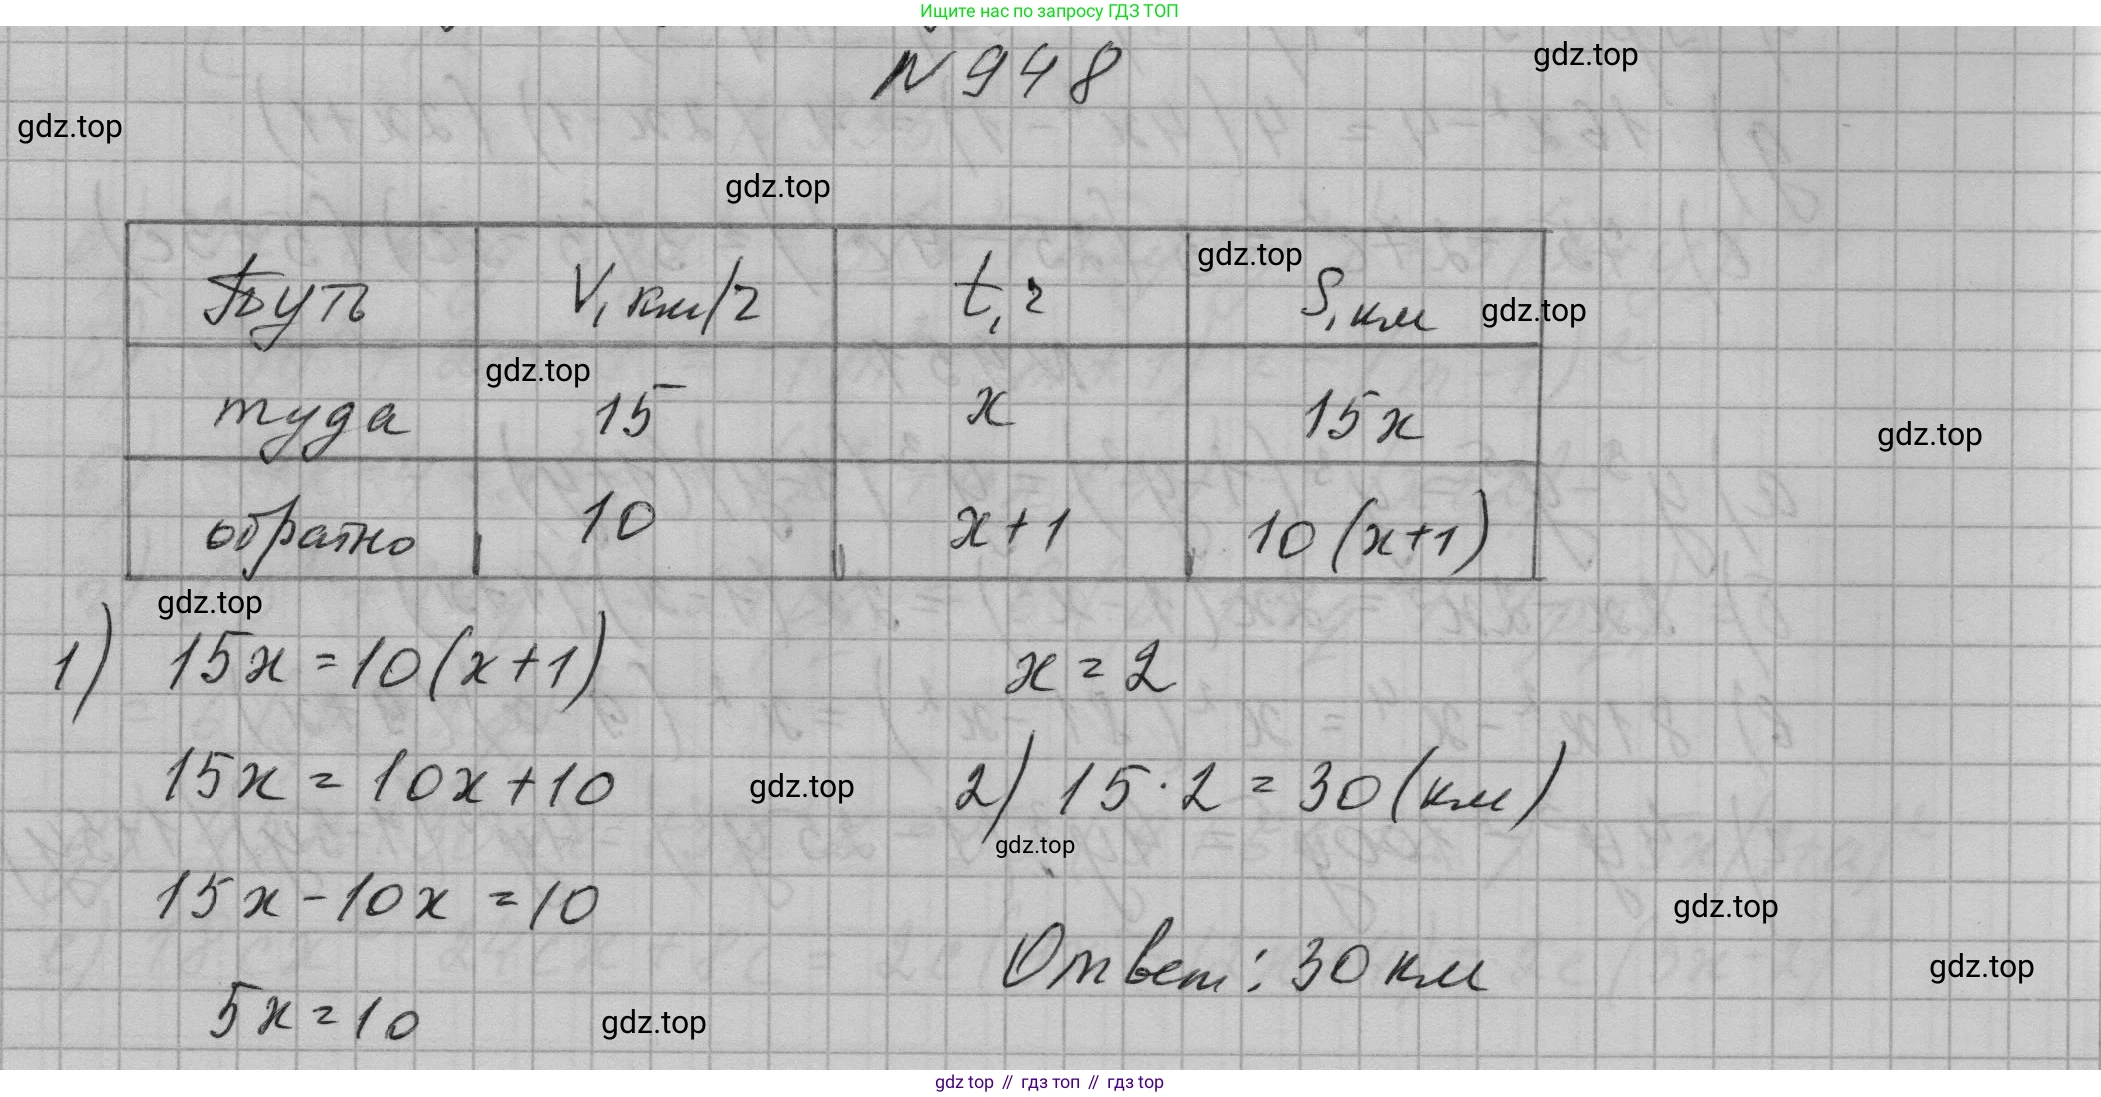 Ищите нас по запросу ГДЗ ТОП
N 948
gdz.top
gdz.top
gdz.top
Путь V, км/ч t, ч S, км
gdz.top
gdz.top
туда 15 x 15x
gdz.top
gdz.top
обратно 10 x+1 10(x+1)
gdz.top
1) 15x=10(x+1)
15x=10x+10
15x-10x=10
5x=10
x=2
2) 15·2=30(км)
gdz.top
gdz.top
Ответ: 30 км
gdz.top
gdz.top
gdz.top
gdz top // гдз топ // гдз top